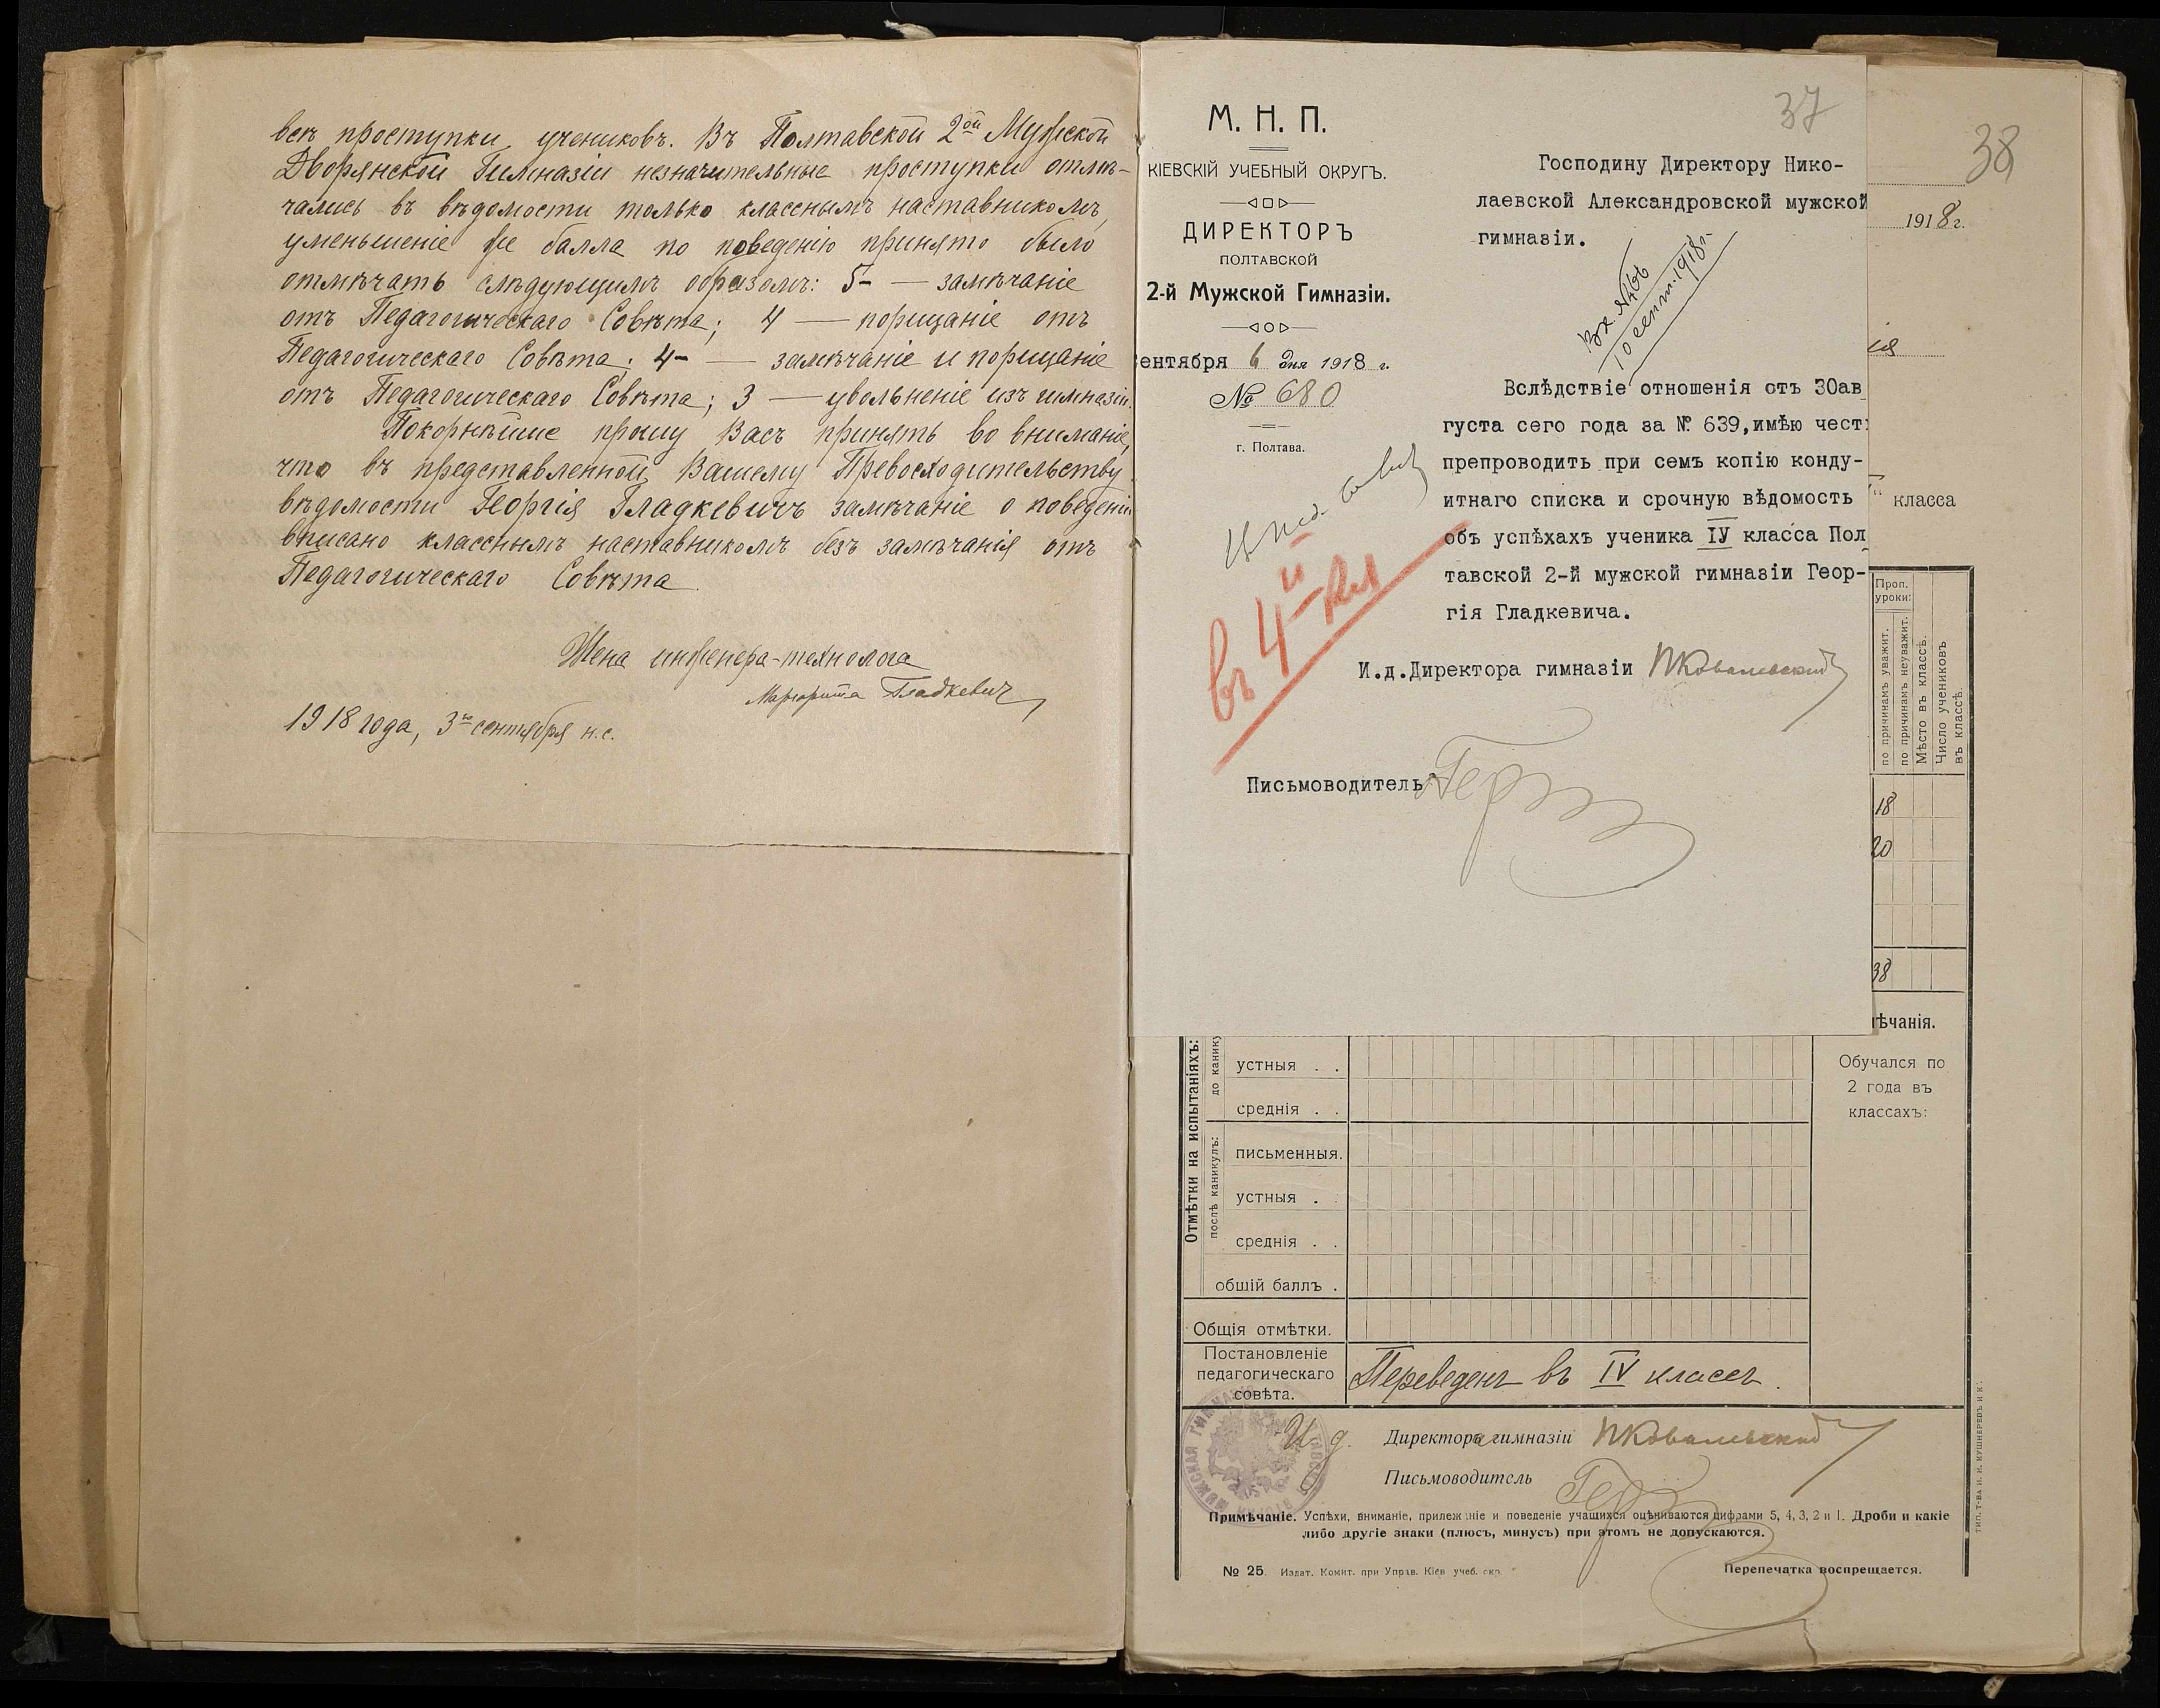 всѣ проступки учениковъ. Въ Полтавской 2ой Мужской
Дворянской Гимназіи незначительные проступки отмѣ-
чались въ вѣдомости только класснымъ наставникомъ,
уменьшеніе же балла по поведенію принято было
отмѣчать слѣдующимъ образомъ: 5- — замѣчаніе
отъ Педагогическаго Совѣта; 4 — порицаніе отъ
Педагогическаго Совѣта; 4- — замѣчаніе и порицаніе
отъ Педагогическаго Совѣта; 3 — увольненіе изъ гимназіи.
Покорнѣйше прошу Васъ принять во вниманіе,
что въ представленной Вашему Превосходительству
вѣдомости Георгія Гладкевичъ замѣчаніе о поведеніи
вписано класснымъ наставникомъ безъ замѣчанія отъ
Педагогическаго Совѣта.
Жена инженера-технолога
Маргарита Гладкевич
1918 года, 3го сентября н.с.
37
М. Н. П.
КІЕВСКІЙ УЧЕБНЫЙ ОКРУГЪ.
ДИРЕКТОРЪ
ПОЛТАВСКОЙ
2-й Мужской Гимназіи.
ентября 6 дня 1918 г.
№ 680
г. Полтава.
Господину Директору Нико-
лаевской Александровской мужской
гимназіи.
Вх. №466
10 сент. 1918 г.
Вслѣдствіе отношенія отъ 30ав
густа сего года за № 639,имѣю чест
препроводить при семъ копію конду-
итнаго списка и срочную вѣдомость
объ успѣхахъ ученика IV класса Пол
тавской 2-й мужской гимназіи Геор-
гія Гладкевича.
въ 4й кл
И.д.Директора гимназіи ПКовалевскій
Письмоводитель
38
1918 г.
ія
класса
Проп.
уроки:
по причинамъ уважит.
по причинамъ неуважит.
Мѣсто въ классѣ.
Число учениковъ
въ классѣ.
18
20
38
ѣчанія.
Обучался по
2 года въ
классахъ:
Отмѣтки на испытаніяхъ:
до канику
устныя . .
среднія . .
послѣ каникулъ:
письменныя.
устныя .
среднія . .
общій баллъ .
Общія отмѣтки.
Постановленіе
педагогическаго
совѣта.
Переведенъ въ IV классъ.
И. д. Директора гимназіи ПКовалевскій
Письмоводитель
МУЖСКАЯ ГИМНАЗІЯ
Примѣчаніе. Успѣхи, вниманіе, прилежаніе и поведеніе учащихся оцѣниваются цифрами 5, 4, 3, 2 и 1. Дроби и какіе
либо другіе знаки (плюсъ, минусъ) при этомъ не допускаются.
№ 25. Издат. Комит. при Управ. Кіев учеб. окр.
Перепечатка воспрещается.
ТИП. Т-ВА И. Н. КУШНЕРЕВЪ И К°.